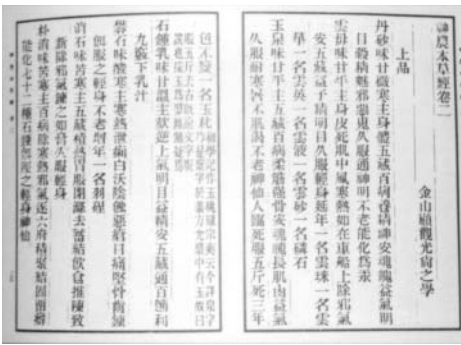 神農本草經卷二
金山顧觀光尚之學
上品
丹砂味甘微寒主身體五藏百病養精神安魂魄益氣明
目殺精魅邪惡鬼久服通神明不老能化為汞
雲母味甘平主身皮死肌中風寒熱如在車船上除邪氣
安五藏益子精明目久服輕身延年一名雲珠一名雲
華一名雲英一名雲液一名雲砂一名磷石
玉泉味甘平主五藏百病柔筋強骨安魂魄長肌肉益氣
久服耐寒暑不肌渴不老神仙人臨死服五斤死三年
色不變一名玉札
石鍾乳味甘溫主欬逆上氣明目益精安五藏通百節利
九竅下乳汁
礬石味酸寒主寒熱泄痢白沃陰蝕惡瘡目痛堅骨齒鍊
餌服之輕身不老增年一名羽涅
消石味苦寒主五藏積熱胃脹閉滌去蓄結飲食推陳致
新除邪氣鍊之如膏久服輕身
朴消味苦寒主百病除寒熱邪氣逐六府積聚結固留癖
能化七十二種石鍊餌服之輕身神仙